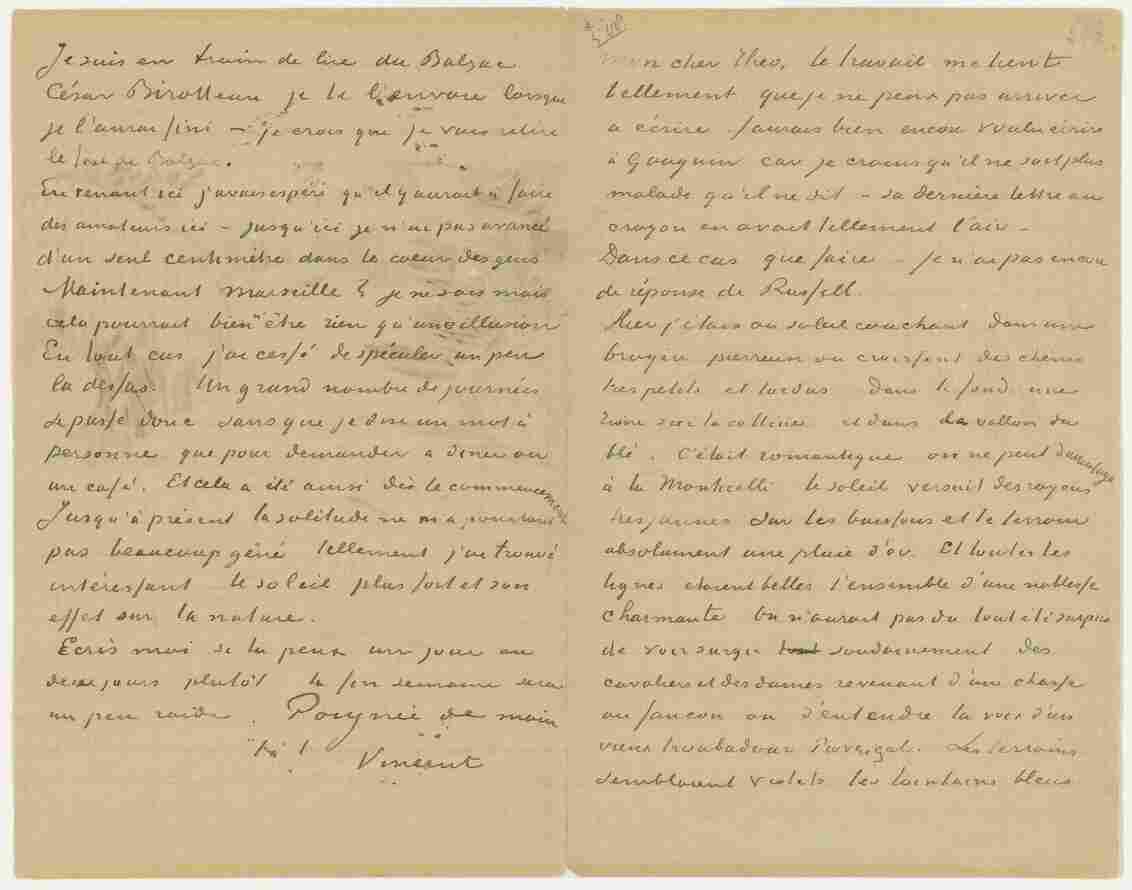 Je suis en train de lire du Balzac
César Birotteau je te l'enverrai lorsque
je l'aurai fini – je crois que je vais relire
le tout de Balzac.
En venant ici j'avais espéré qu'il y aurait à faire
des amateurs ici – jusqu'ici je n'ai pas avancé
d'un seul centimètre dans le coeur des gens
Maintenant Marseille? je ne sais mais
cela pourrait bien être rien qu'une illusion
En tout cas j'ai cessé de spéculer un peu
la dessus. Un grand nombre de journées
se passe donc sans que je dise un mot à
personne que pour demander a diner ou
un café. Et cela a été ainsi dès le commencement
Jusqu'à présent la solitude ne m'a pourtant
pas beaucoup gêné tellement j'ai trouvé
intéressant le soleil plus fort et son
effet sur la nature.
Ecris moi si tu peux un jour ou
deux jours plutôt la fin semaine sera
un peu raide. Poignée de main
t. à t.
Vincent
Mon cher Theo, le travail me tient
tellement que je ne peux pas arriver
a écrire. J'aurais bien encore voulu écrire
à Gauguin car je crains qu'il ne soit plus
malade qu'il ne dit – sa dernière lettre au
crayon en avait tellement l'air –
Dans ce cas que faire – je n'ai pas encore
de réponse de Russell.
Hier j'étais au soleil couchant dans une
bruyère pierreuse ou croissent des chênes
tres petits et tordus dans le fond une
ruine sur la colline et dans le vallon du
blé. C'était romantique on ne peut davantage
à la Monticelli le soleil versait des rayons
tres jaunes sur les buissons et le terrain
absolument une pluie d'or. Et toutes les
lignes etaient belles l'ensemble d'une noblesse
charmante On n'aurait pas du tout été surpris
de voir surgir tout soudainement des
cavaliers et des dames revenant d'une chasse
au faucon ou d'entendre la voix d'un
vieux troubadour Provençal. Les terrains
semblaient violets les lointains bleus